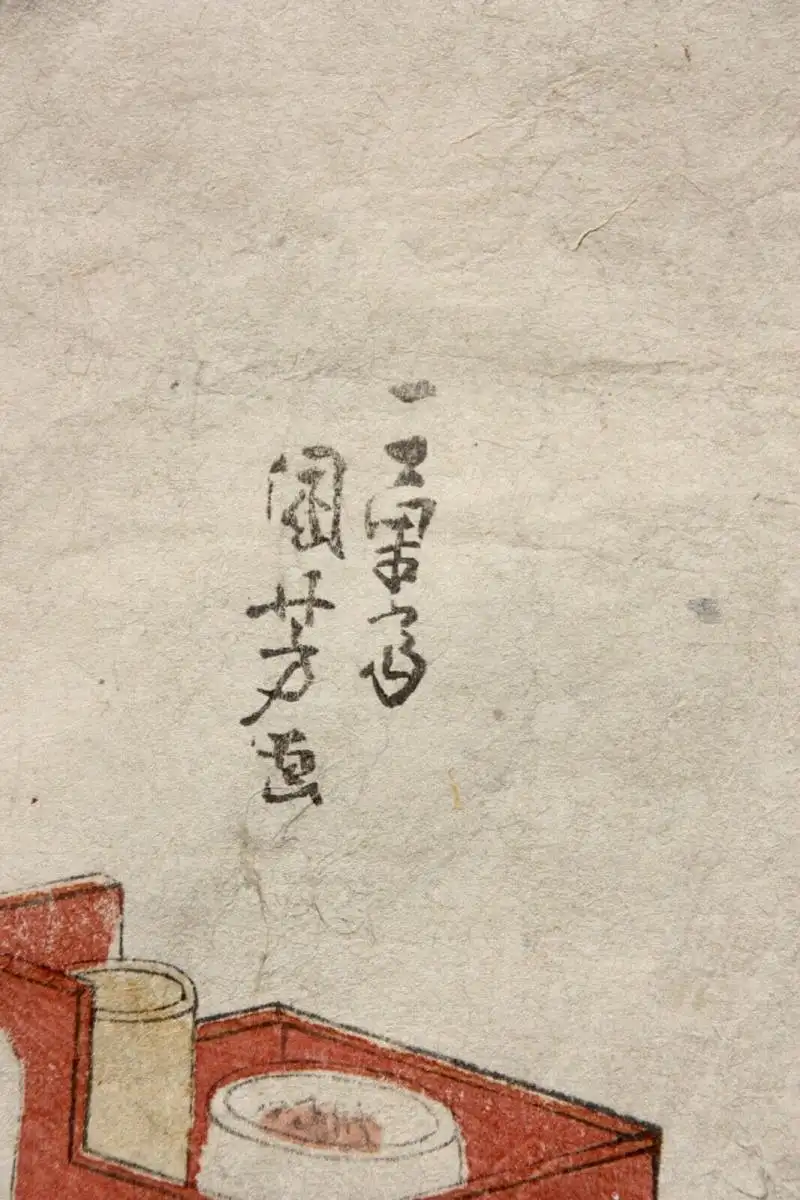 一勇斎
國芳画